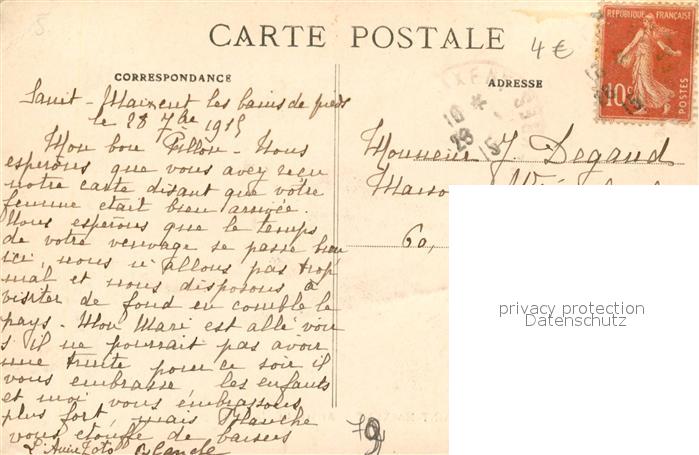 5
CARTE POSTALE
4 €
RÉPUBLIQUE FRANÇAISE
10 c
POSTES
CORRESPONDANCE
ADRESSE
Saint-Maixent les bains de pieds
le 28 7bre 1915
Mon bon Fillou - Nous
espérons que vous avez reçu
notre carte disant que votre
femme était bien arrivée.
Nous espérons que le temps
de votre veuvage se passe bien
ici, nous n'allons pas trop
mal et nous disposons à
visiter de fond en comble le
pays - Mon Mari est allé voir
s'il ne pourrait pas avoir
une truite pour ce soir il
vous embrasse les enfants
et moi vous embrassons
plus fort, mais Blanche
vous étouffe de baisers
L'Amie Toto Blanche
10 *
28
15
Monsieur J. Degand
Maison
60,
privacy protection
Datenschutz
79